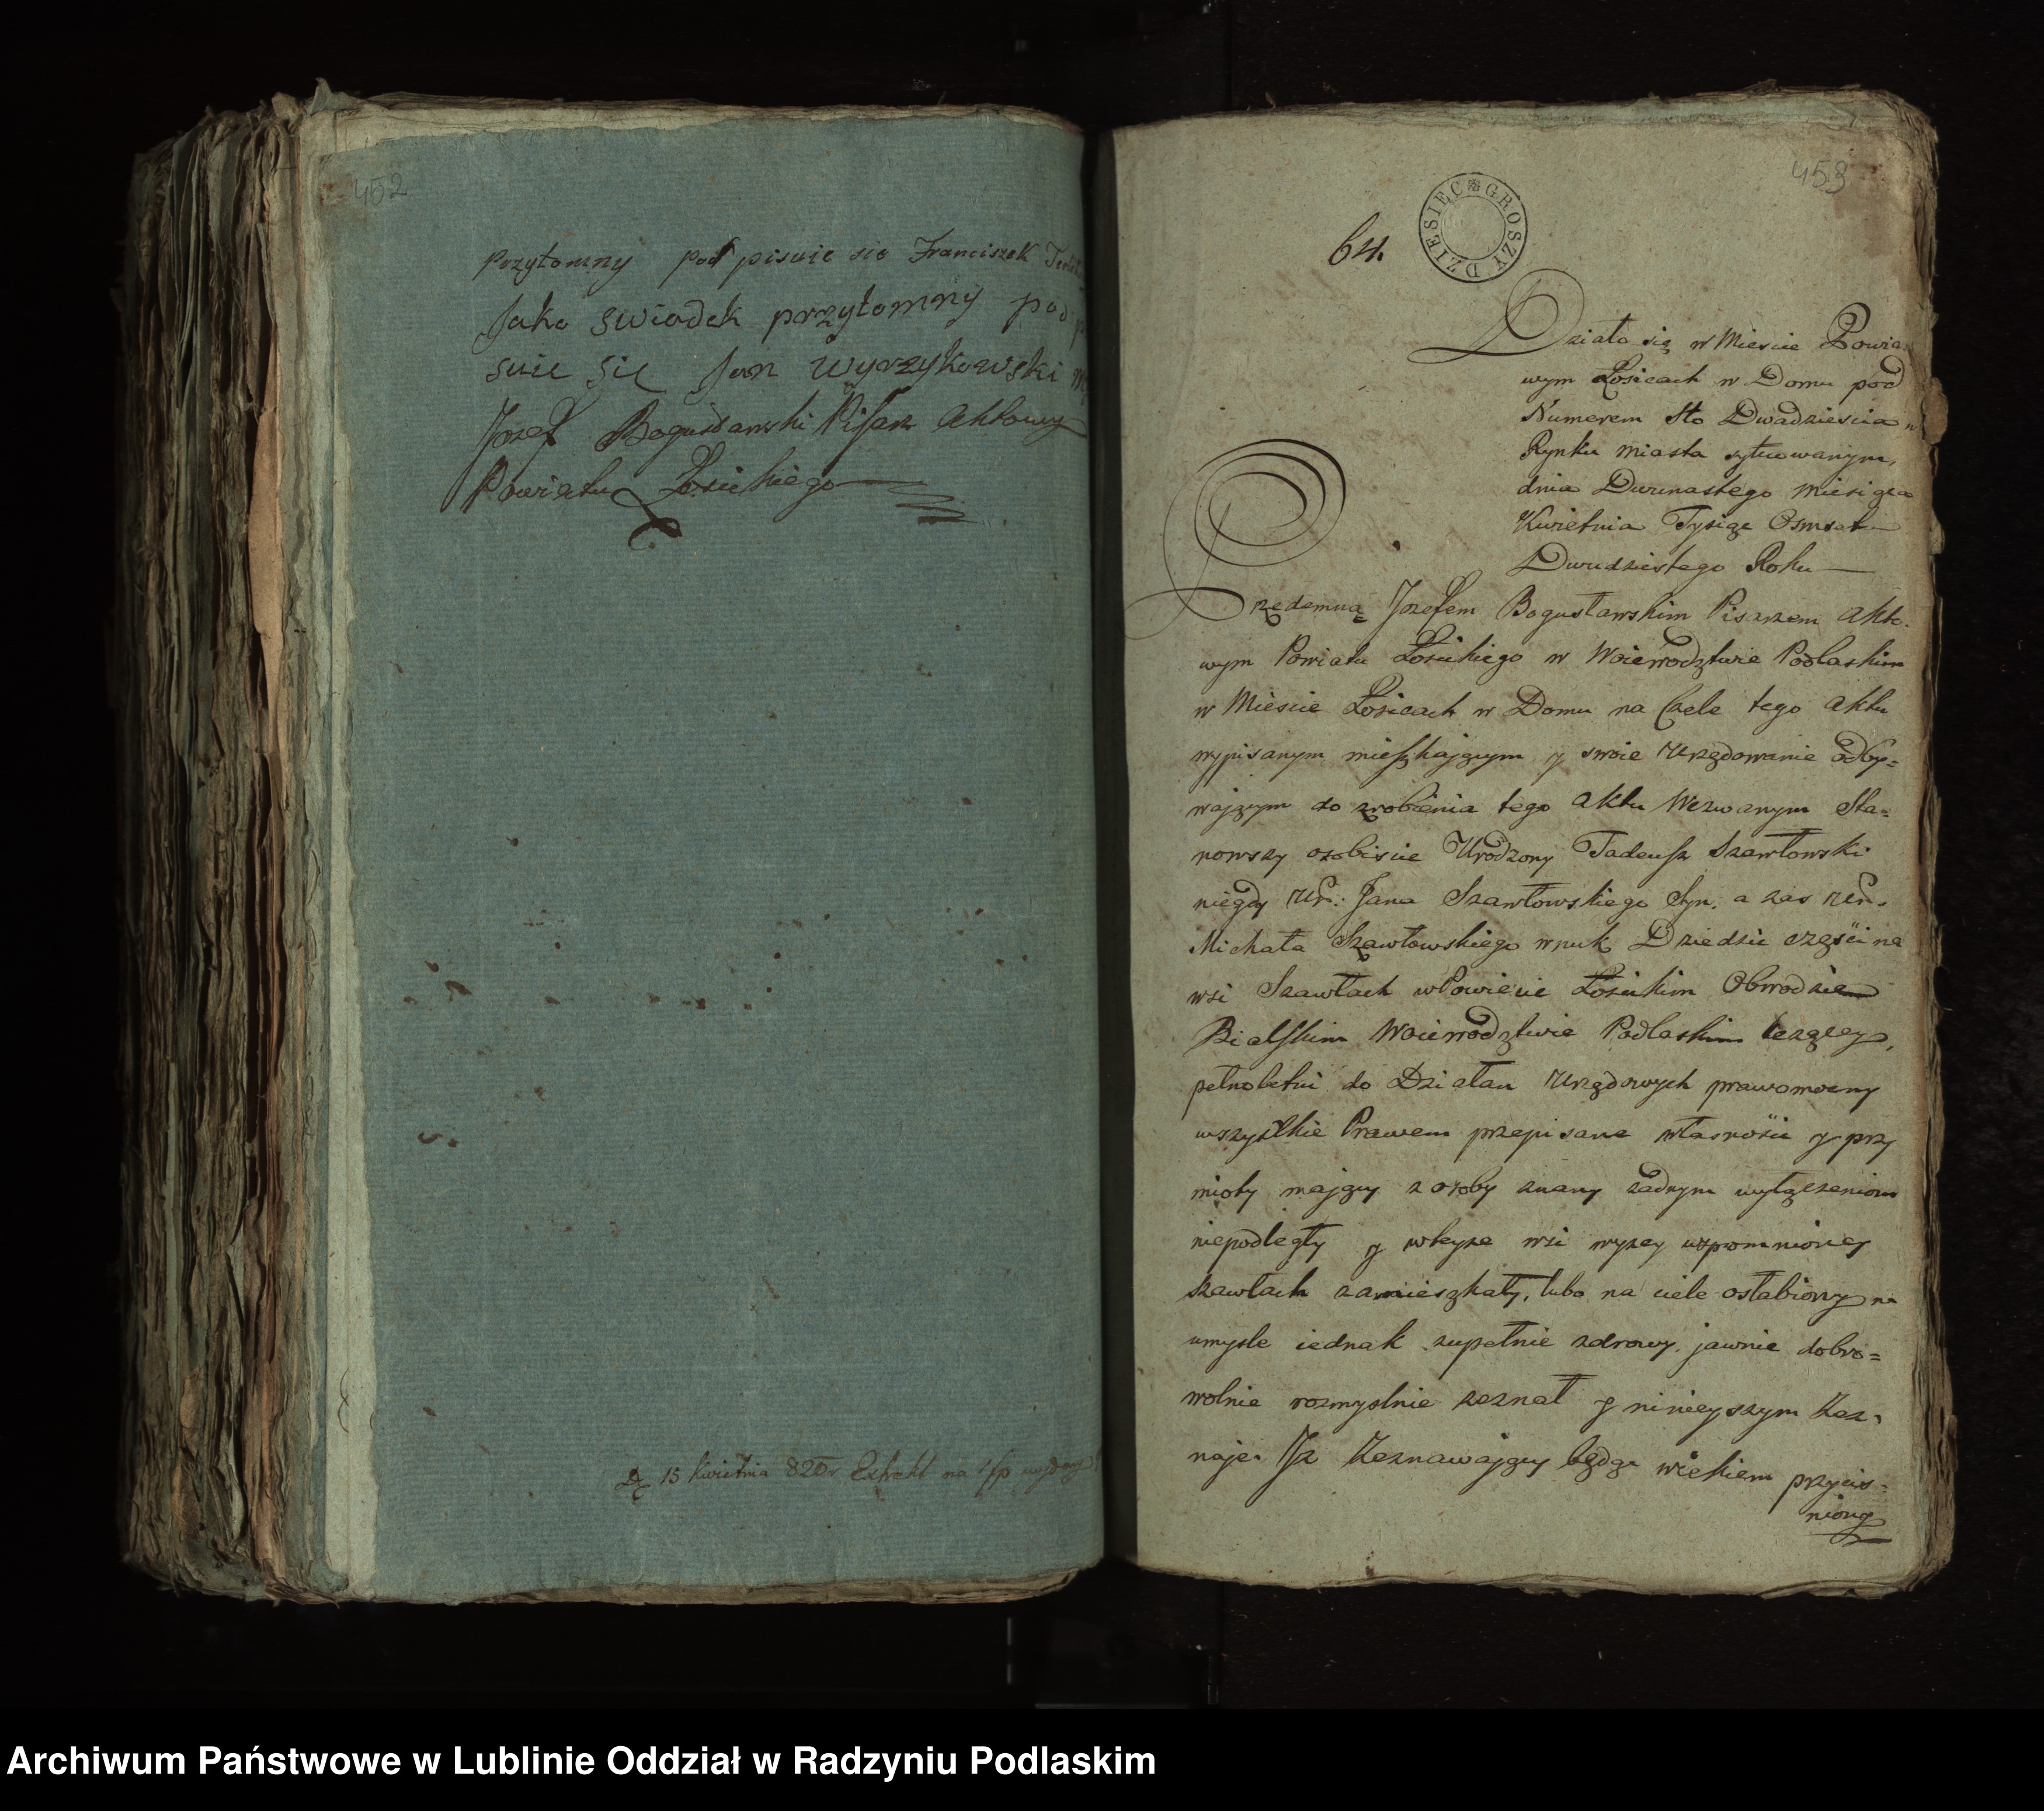 452
przytomny podpisuie sie Franciszek
Jako swiadek przytomny pod
suie się Jan Wyrzykowski
Jozef Bogusławski Pisarz Aktowy
Powiatu Łosickiego
D 15 Kwietnia 820 r. Extrakt na wydany
453
64.
DZIESIĘC GROSZY
Działo się w Miescie Powia
wym Łosicach w Domu pod
Numerem Sto Dwadziescia w
Rynku miasta sytuowanym,
dnia Dwunastego Miesiąca
Kwietnia Tysiąc Osmset
Dwudziestego Roku
Przedemną Jozefem Bogusławskim Pisarzem Akto-
wym Powiatu Łosickiego w Woiewodztwie Podlaskim
w Miescie Łosicach w Domu na Czele tego Aktu
wypisanym mieszkaiącym y swoie Urzędowanie odby=
waiącym do zrobienia tego Aktu Wezwanym Sta=
nowszy osobiscie Urodzony Tadeusz Szawłowski
niegdy Ur: Jana Szawłowskiego Syn. a zas Ur.
Michała Szawłowskiego wnuk Dziedzic części na
wsi Szawłach w Powiecie Łosickim Obwodzie
Bialskim Woiewodztwie Podlaskim leżącey,
pełnoletni do Działań Urzędowych prawomocny
wszystkie Prawem przepisane własności y przy
mioty maiący z osoby znany żadnym wyłączeniom
niepodległy y w teyże wsi wyżey wspomnioney
Szawłach zamieszkały, lubo na ciele osłabiony na
umysle iednak zupełnie zdrowy, jawnie dobro=
wolnie rozmyslnie zeznał y ninieyszym Zez-
naje. Iż Zeznawaiący będąc wiekiem przycis-
niony
Archiwum Państwowe w Lublinie Oddział w Radzyniu Podlaskim